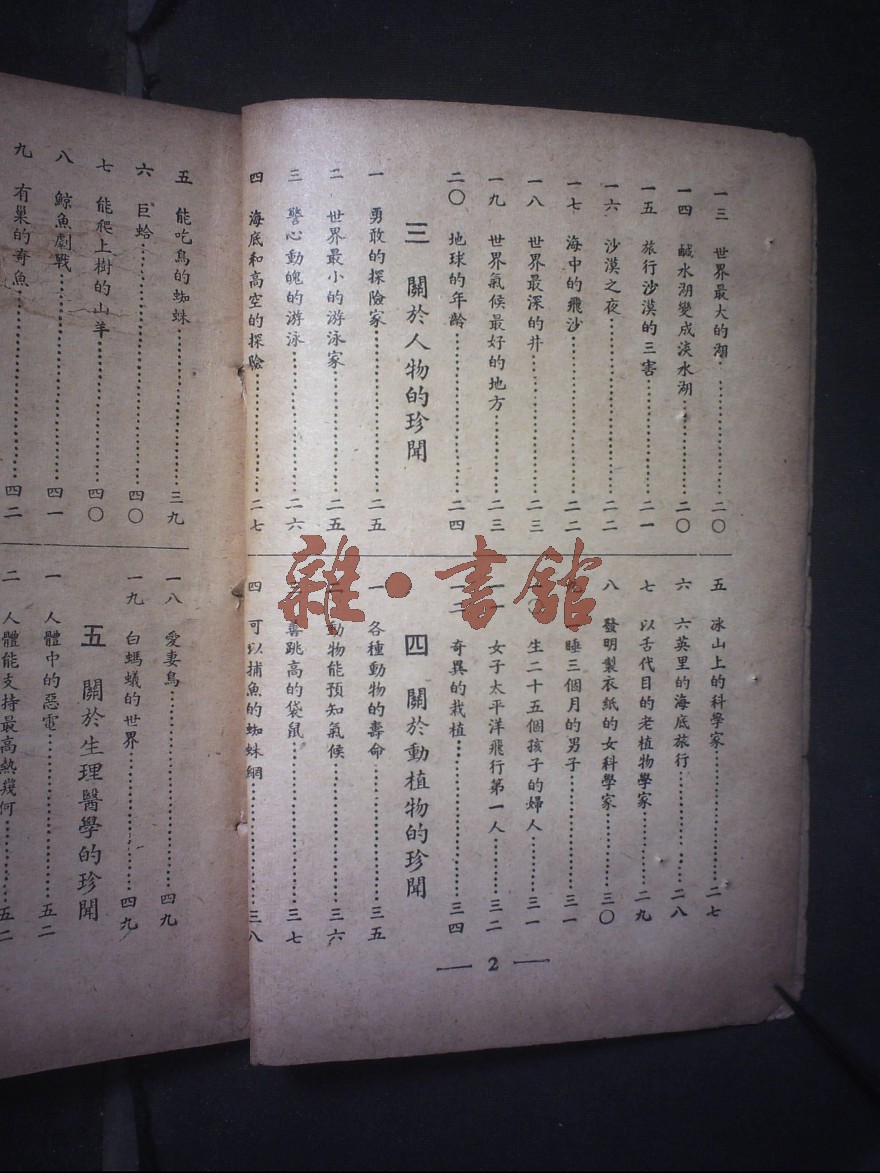 一三 世界最大的湖……二〇
一四 鹹水湖變成淡水湖……二〇
一五 旅行沙漠的三害……二一
一六 沙漠之夜……二二
一七 海中的飛沙……二二
一八 世界最深的井……二三
一九 世界氣候最好的地方……二三
二〇 地球的年齡……二四
三 關於人物的珍聞
一 勇敢的探險家……二五
二 世界最小的游泳家……二五
三 驚心動魄的游泳……二六
四 海底和高空的探險……二七
五 冰山上的科學家……二七
六 六英里的海底旅行……二八
七 以舌代目的老植物學家……二九
八 發明製衣紙的女科學家……三〇
睡三個月的男子……三一
生二十五個孩子的婦人……三一
一一 女子太平洋飛行第一人……三二
一二 奇異的栽植……三四
四 關於動植物的珍聞
一 各種動物的壽命……三五
二 動物能預知氣候……三六
三 善跳高的袋鼠……三七
四 可以捕魚的蜘蛛網……三八
2
五 能吃鳥的蜘蛛……三九
六 巨蛤……四〇
七 能爬上樹的山羊……四〇
八 鯨魚劇戰……四一
九 有巢的奇魚……四二
一八 愛妻鳥……四九
一九 白螞蟻的世界……四九
五 關於生理醫學的珍聞
一 人體中的惡電……五二
二 人體能支持最高熱幾何……五二
雜·書館